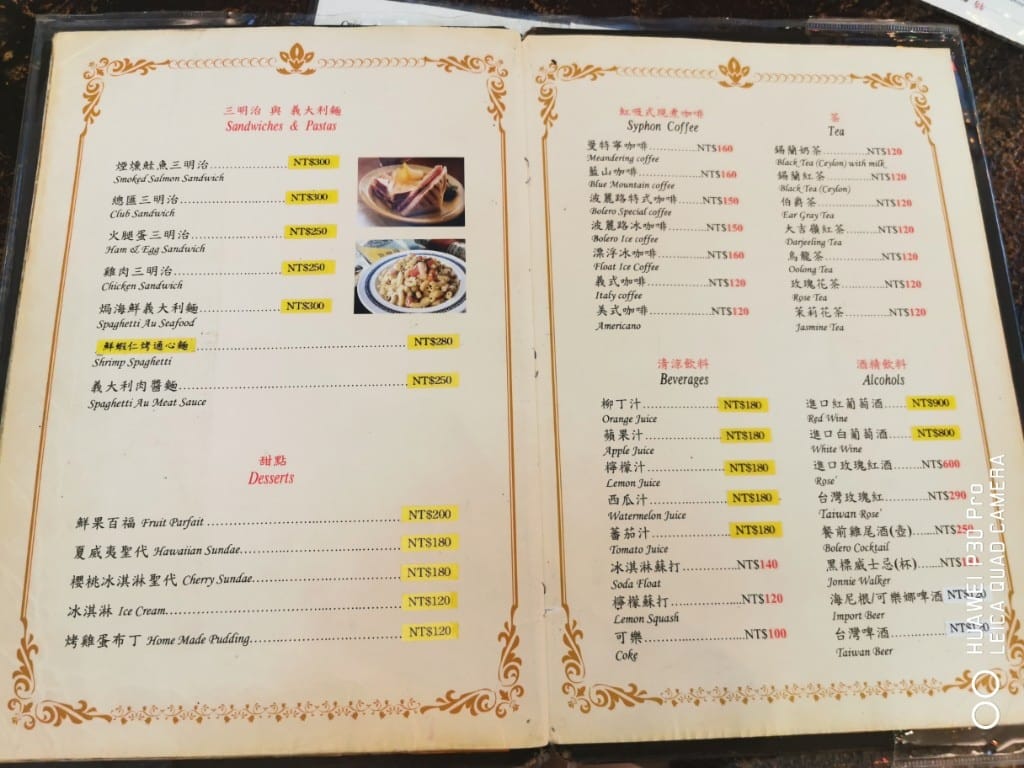 三明治 與 義大利麵
Sandwiches & Pastas
煙燻鮭魚三明治 NT$300
Smoked Salmon Sandwich
總匯三明治 NT$300
Club Sandwich
火腿蛋三明治 NT$250
Ham & Egg Sandwich
雞肉三明治 NT$250
Chicken Sandwich
焗海鮮義大利麵 NT$300
Spaghetti Au Seafood
鮮蝦仁烤通心麵 NT$280
Shrimp Spaghetti
義大利肉醬麵 NT$250
Spaghetti Au Meat Sauce
甜點
Desserts
鮮果百福 Fruit Parfait NT$200
夏威夷聖代 Hawaiian Sundae NT$180
櫻桃冰淇淋聖代 Cherry Sundae NT$180
冰淇淋 Ice Cream NT$120
烤雞蛋布丁 Home Made Pudding NT$120
紅吸式現煮咖啡
Syphon Coffee
曼特寧咖啡 NT$160
Meandering coffee
藍山咖啡 NT$160
Blue Mountain coffee
波麗路特式咖啡 NT$150
Bolero Special coffee
波麗路冰咖啡 NT$150
Bolero Ice coffee
漂浮冰咖啡 NT$160
Float Ice Coffee
義式咖啡 NT$120
Italy coffee
美式咖啡 NT$120
Americano
茶
Tea
錫蘭奶茶 NT$120
Black Tea (Ceylon) with milk
錫蘭紅茶 NT$120
Black Tea (Ceylon)
伯爵茶 NT$120
Ear Gray Tea
大吉嶺紅茶 NT$120
Darjeeling Tea
烏龍茶 NT$120
Oolong Tea
玫瑰花茶 NT$120
Rose Tea
茉莉花茶 NT$120
Jasmine Tea
清涼飲料
Beverages
柳丁汁 NT$180
Orange Juice
蘋果汁 NT$180
Apple Juice
檸檬汁 NT$180
Lemon Juice
西瓜汁 NT$180
Watermelon Juice
蕃茄汁 NT$180
Tomato Juice
冰淇淋蘇打 NT$140
Soda Float
檸檬蘇打 NT$120
Lemon Squash
可樂 NT$100
Coke
酒精飲料
Alcohols
進口紅葡萄酒 NT$900
Red Wine
進口白葡萄酒 NT$800
White Wine
進口玫瑰紅酒 NT$600
Rose'
台灣玫瑰紅 NT$290
Taiwan Rose'
餐前雞尾酒(壺) NT$250
Bolero Cocktail
黑標威士忌(杯)
Jonnie Walker
海尼根/可樂娜啤酒
Import Beer
台灣啤酒
Taiwan Beer
HUAWEI P30 Pro
LEICA QUAD CAMERA